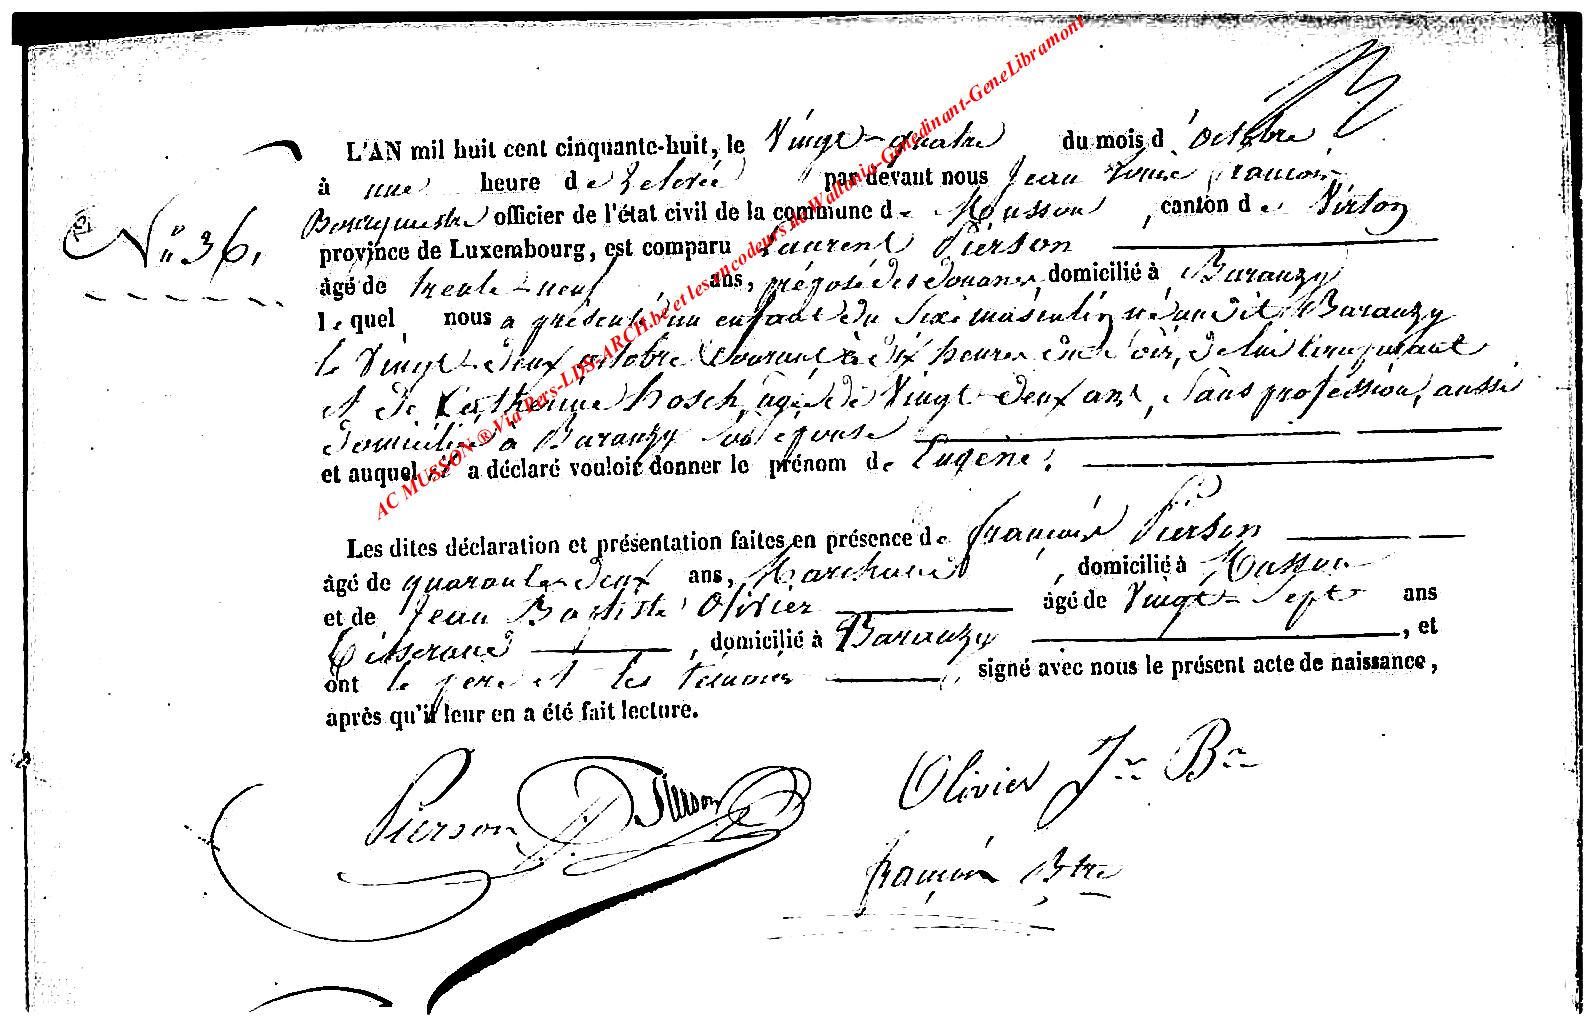 L'AN mil huit cent cinquante-huit, le Vingt-quatre du mois d'octobre
à une heure de relevée par devant nous Jean Louis François
N° 36.
Bourgmestre officier de l'état civil de la commune de Musson, canton de Virton
province de Luxembourg, est comparu Laurent Pierson
âgé de trente-neuf ans, préposé des douanes, domicilié à Baranzy
lequel nous a présenté un enfant du sexe masculin né au dit Baranzy
le Vingt-deux octobre courant à dix heures du soir, de lui comparant
et de Catherine Hosch, âgée de Vingt-deux ans, sans profession, aussi
domiciliée à Baranzy son épouse
et auquel il a déclaré vouloir donner le prénom de Eugène.
Les dites déclaration et présentation faites en présence de François Pierson
âgé de quarante-deux ans, Marchand, domicilié à Musson
et de Jean Baptiste Olivier âgé de Vingt-Sept ans
Tisserand, domicilié à Baranzy, et
ont le père et les témoins, signé avec nous le présent acte de naissance,
après qu'il leur en a été fait lecture.
Olivier Jn Bte
Pierson Pierson
François Btre
AC MUSSON ® Via Pers-LDS-ARCH.be et les encodeurs de Wallonia-Genedinant-GeneLibramont